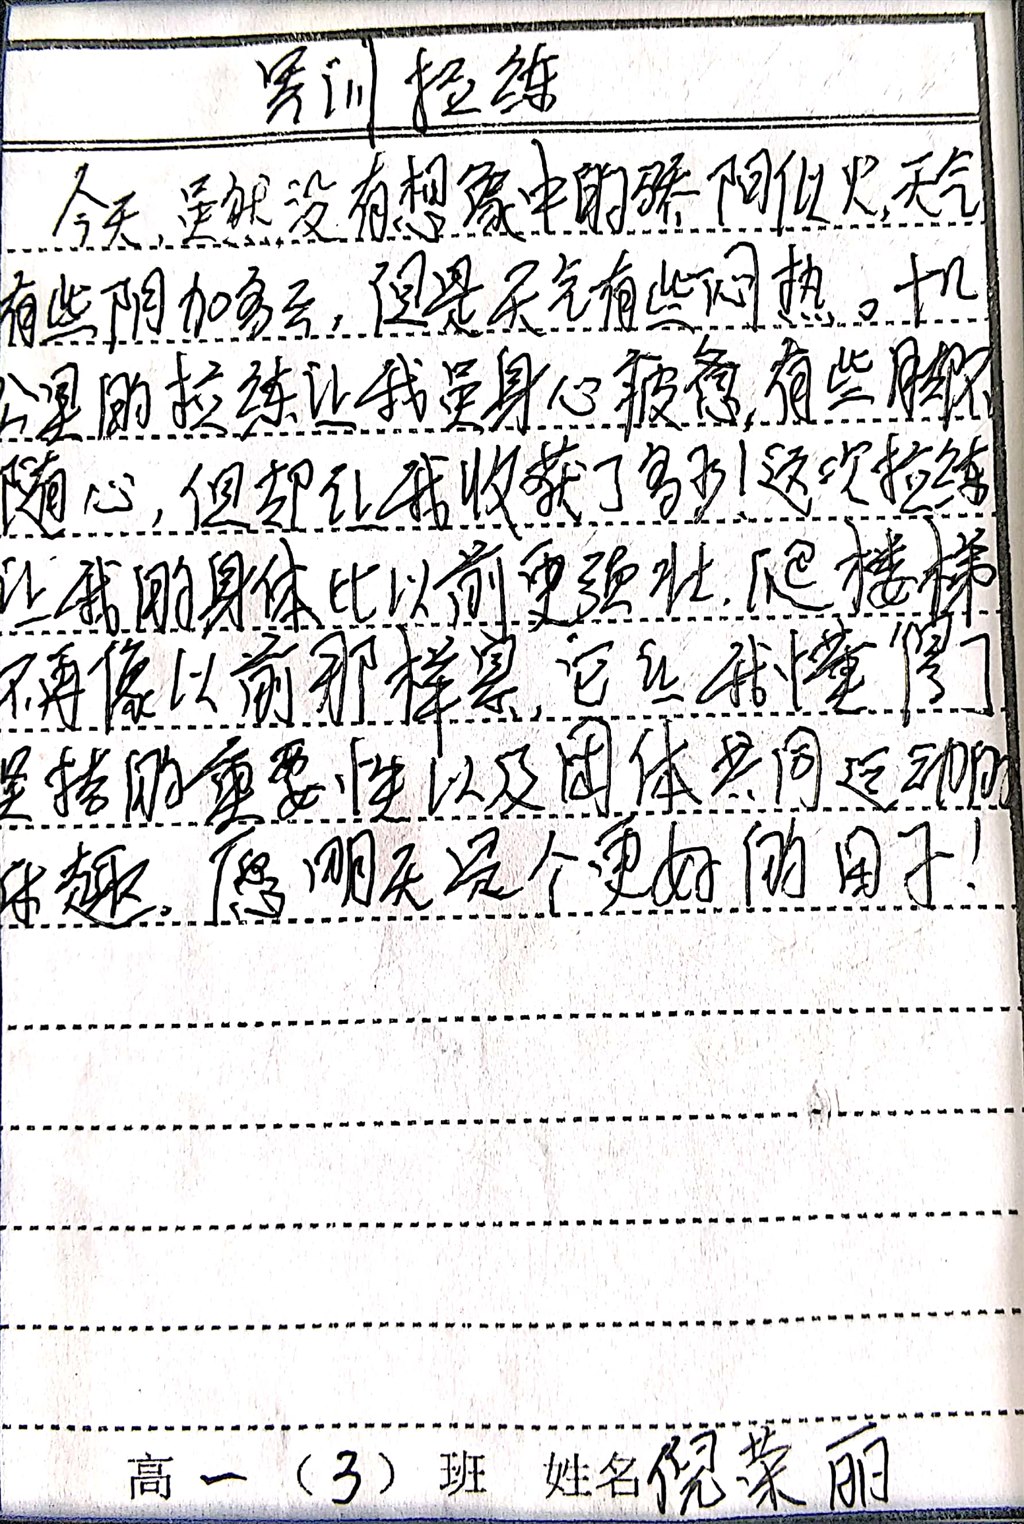 军训拉练
今天,虽然没有想象中的骄阳似火,天气
有些阴加多云,但是天气有些闷热。十几
公里的拉练让我虽身心疲惫,有些脚不
随心,但却让我收获了多形!这次拉练
让我的身体比以前更强壮,爬楼梯
不再像以前那样累,它让我懂得了
坚持的重要性以及团体共同运动的
乐趣。愿明天是个更好的日子!
高一(3)班 姓名倪荣丽